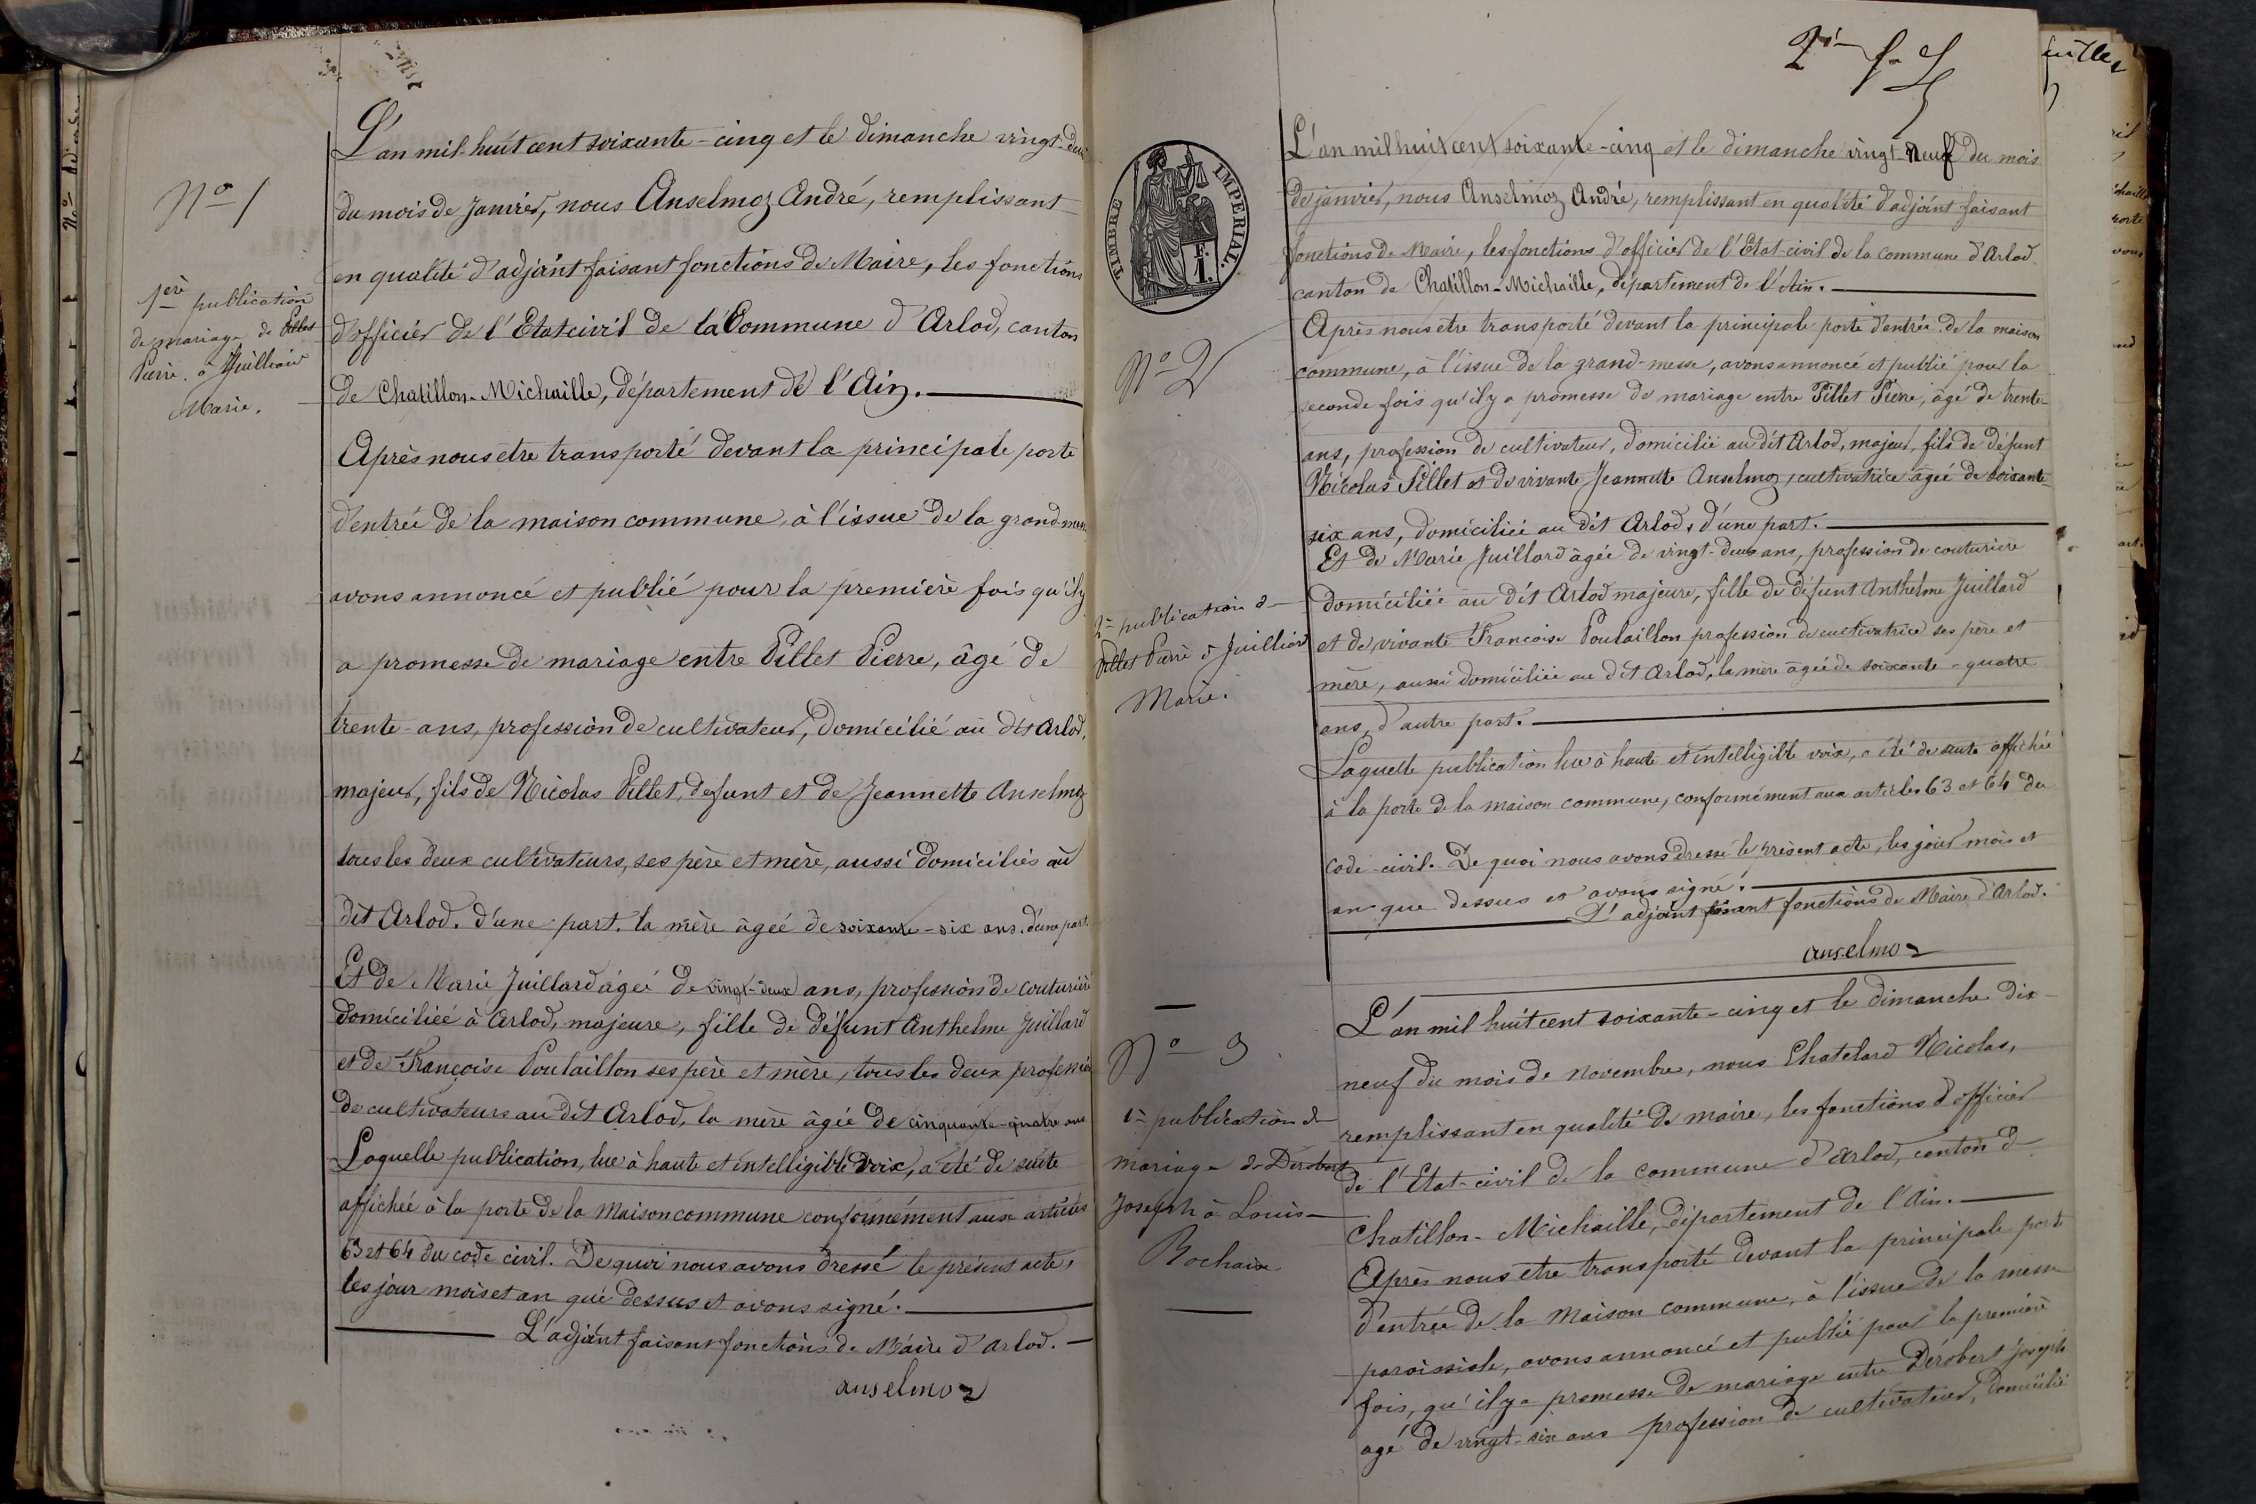 N° 1
1ère publication
de mariage de Pillet
Pierre à Juilliard
Marie.
L'an mil huit cent soixante-cinq et le dimanche vingt-deux
du mois de Janvier, nous Anselmoz André, remplissant
en qualité d'adjoint faisant fonctions de Maire, les fonctions
d'officier de l'Etat civil de la Commune d'Arlod, canton
de Chatillon-Michaille, département de l'Ain.
Après nous être transporté devant la principale porte
d'entrée de la maison commune, à l'issue de la grand-messe
avons annoncé et publié pour la première fois qu'il y
a promesse de mariage entre Pillet Pierre, âgé de
trente-ans, profession de cultivateur, domicilié au dit Arlod,
majeur, fils de Nicolas Pillet, defunt et de Jeannette Anselmoz
tous les deux cultivateurs, ses père et mère, aussi domiciliés au
dit Arlod. d'une part. la mère âgée de soixante-six ans. d'une part.
Et de Marie Juillard âgée de vingt-deux ans, profession de couturière
domiciliée à Arlod, majeure, fille de défunt Anthelme Juillard
et de Françoise Poulaillon ses père et mère, tous les deux profession
de cultivateurs au dit Arlod, la mère âgée de cinquante-quatre ans
Laquelle publication, lue à haute et intelligible voix, a été de suite
affichée à la porte de la Maison commune conformément aux articles
63 et 64 du code civil. De quoi nous avons dressé le présent acte,
les jour mois et an que dessus et avons signé.
L'adjoint faisant fonctions de Maire d'Arlod.
anselmoz
2è f.
TIMBRE IMPERIAL.
N° 2
2è publication de
Pillet Pierre à Juilliard
Marie.
L'an mil huit cent soixante-cinq et le dimanche vingt-neuf du mois
de janvier, nous Anselmoz André, remplissant en qualité d'adjoint faisant
fonctions de Maire, les fonctions d'officier de l'Etat-civil de la commune d'Arlod
canton de Chatillon-Michaille, département de l'Ain.
Après nous être transporté devant la principale porte d'entrée de la maison
commune, à l'issue de la grand-messe, avons annoncé et publié pour la
seconde fois qu'il y a promesse de mariage entre Pillet Pierre, âgé de trente-
ans, profession de cultivateur, domicilié au dit Arlod, majeur, fils de défunt
Nicolas Pillet et de vivante Jeannette Anselmoz, cultivatrice âgée de soixante-
six ans, domiciliée au dit Arlod, d'une part.
Et de Marie Juillard âgée de vingt-deux ans, profession de couturiere
domiciliée au dit Arlod majeure, fille de défunt Anthelme Juillard
et de vivante Françoise Poulaillon profession de cultivatrice ses père et
mère, aussi domiciliée au dit Arlod, la mère âgée de soixante-quatre
ans, d'autre part.
Laquelle publication lue à haute et intelligible voix, a été de suite affichée
à la porte de la maison commune, conformément aux articles 63 et 64 du
code-civil. De quoi nous avons dressé le présent acte, les jour mois et
an que dessus et avons signé.
L'adjoint faisant fonctions de Maire d'Arlod.
anselmoz
N° 3
1è publication de
mariage de Dérobert
Joseph à Louise
Rochaix
L'an mil huit cent soixante-cinq et le dimanche dix-
neuf du mois de novembre, nous Chatelard Nicolas,
remplissant en qualité de maire, les fonctions d'officier
de l'Etat-civil de la commune d'Arlod, canton de
Chatillon-Michaille, département de l'Ain.
Après nous être transporté devant la principale porte
d'entrée de la Maison commune, à l'issue de la messe
paroissiale, avons annoncé et publié pour la première
fois, qu'il y a promesse de mariage entre Dérobert joseph
agé de vingt-six ans profession de cultivateur, domicilié